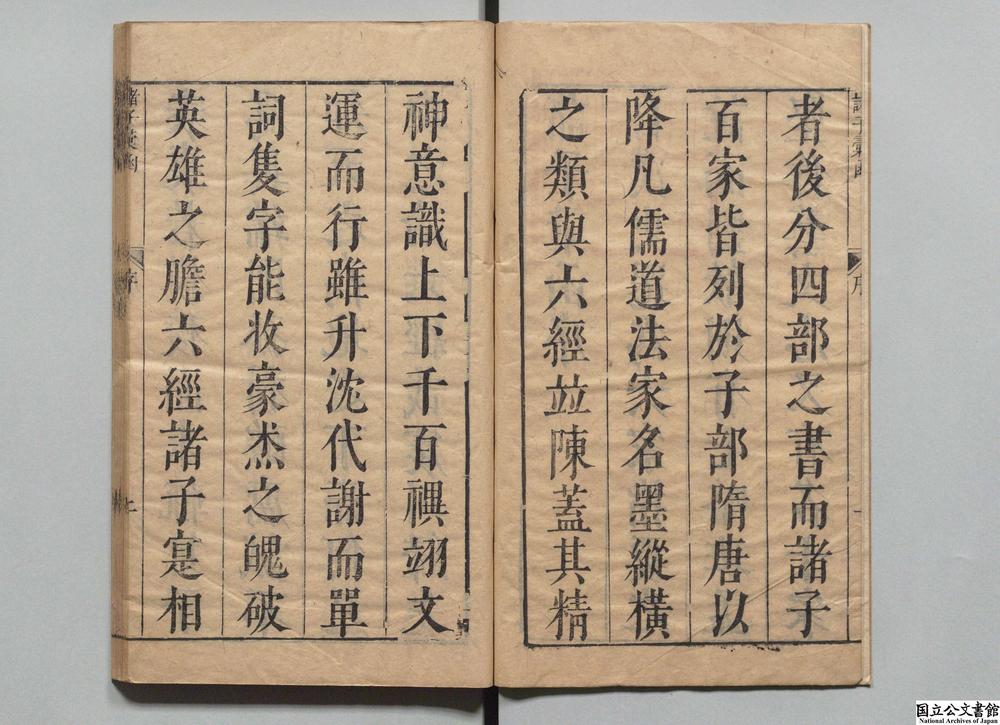 者後分四部之書而諸子
百家皆列於子部隋唐以
降凡儒道法家名墨縱橫
之類與六經竝陳蓋其精
神意識上下千百禩翊文
運而行雖升沈代謝而單
詞隻字能收豪杰之魄破
英雄之膽六經諸子寔相
諸子彙函
序
国立公文書館
National Archives of Japan